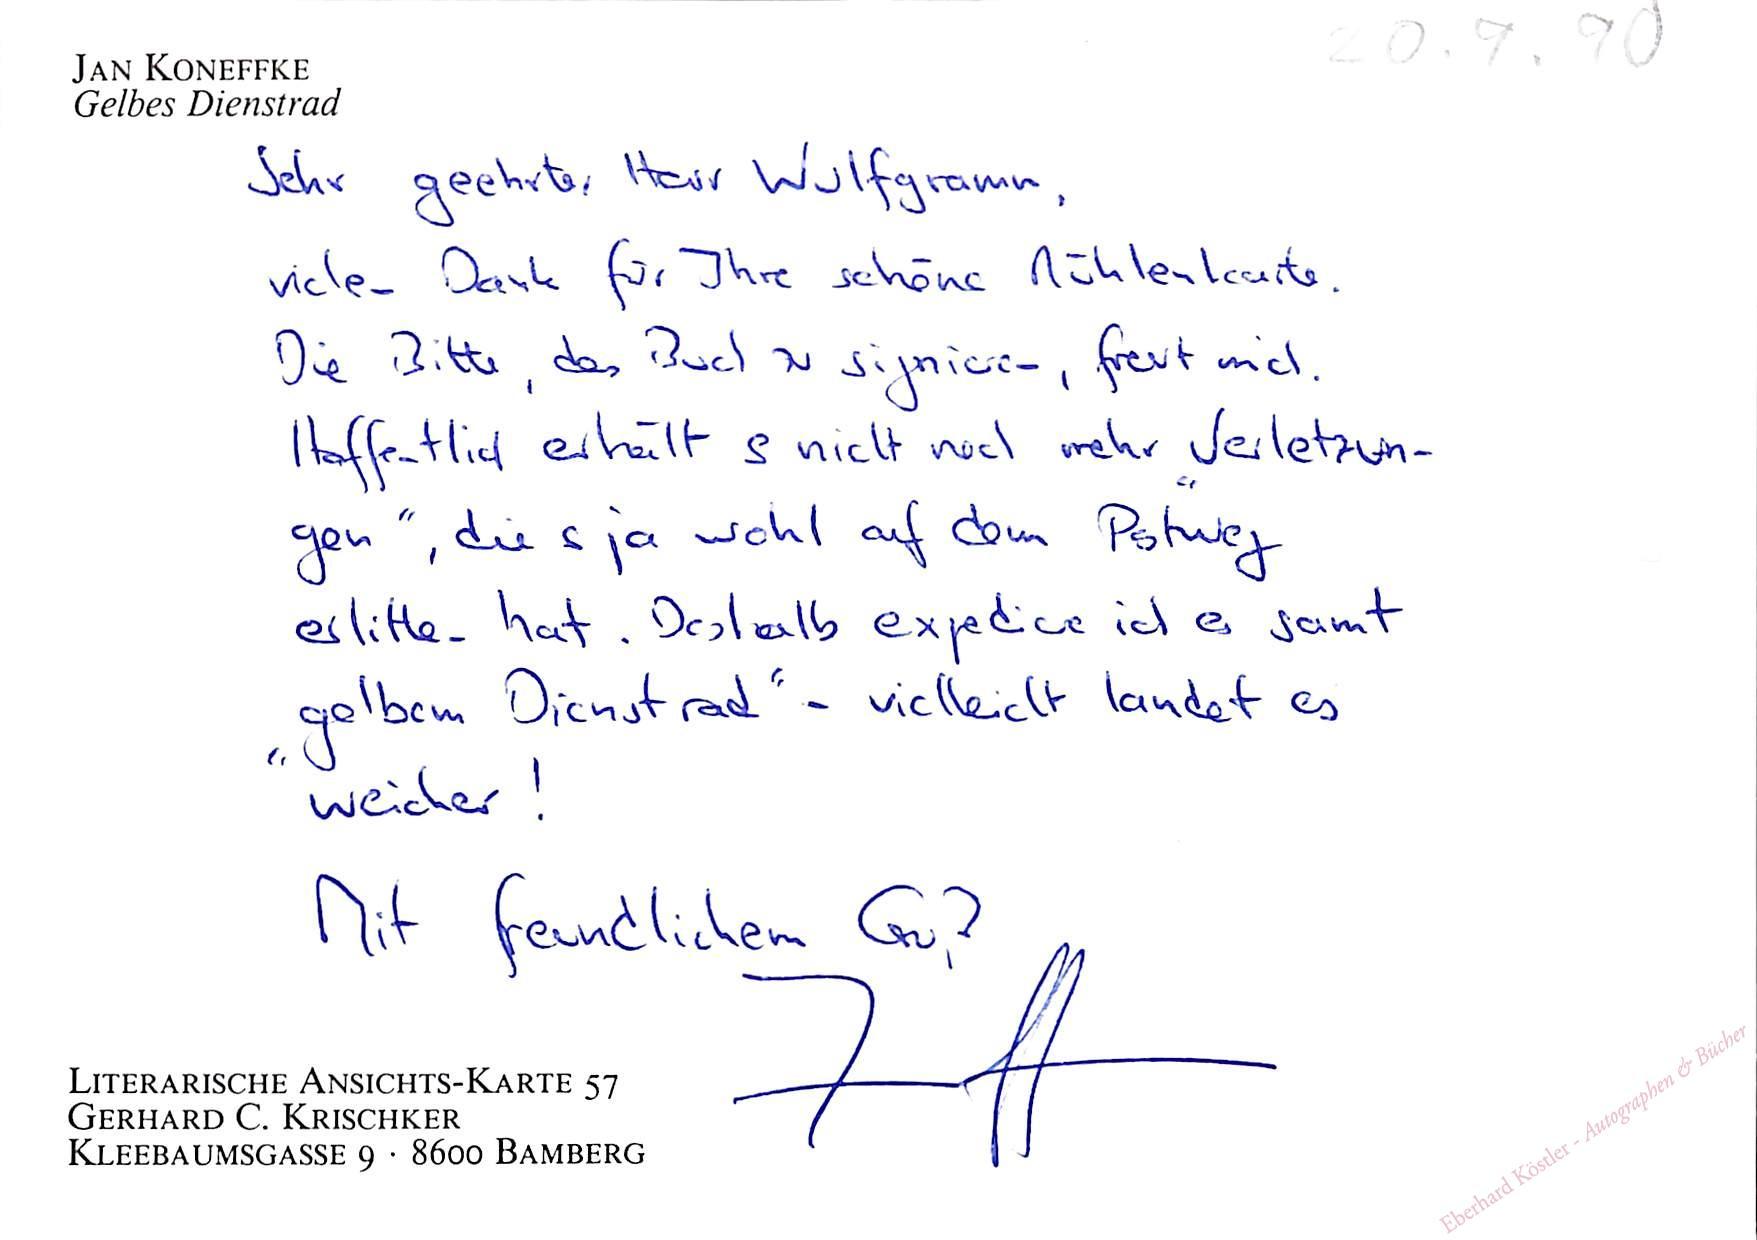 20.9.90
JAN KONEFFKE
Gelbes Dienstrad
Sehr geehrter Herr Wulfgramm,
vielen Dank für Ihre schöne Mühlenkarte.
Die Bitte, das Buch zu signieren, freut mich.
Hoffentlich erhält es nicht noch mehr „Verletzun-
gen“, die es ja wohl auf dem Postweg
erlitten hat. Deshalb expediere ich es samt
„gelbem Dienstrad“ - vielleicht landet es
weicher!
Mit freundlichem Gruß
LITERARISCHE ANSICHTS-KARTE 57
GERHARD C. KRISCHKER
KLEEBAUMSGASSE 9 · 8600 BAMBERG
Eberhard Köstler - Autographen & Bücher